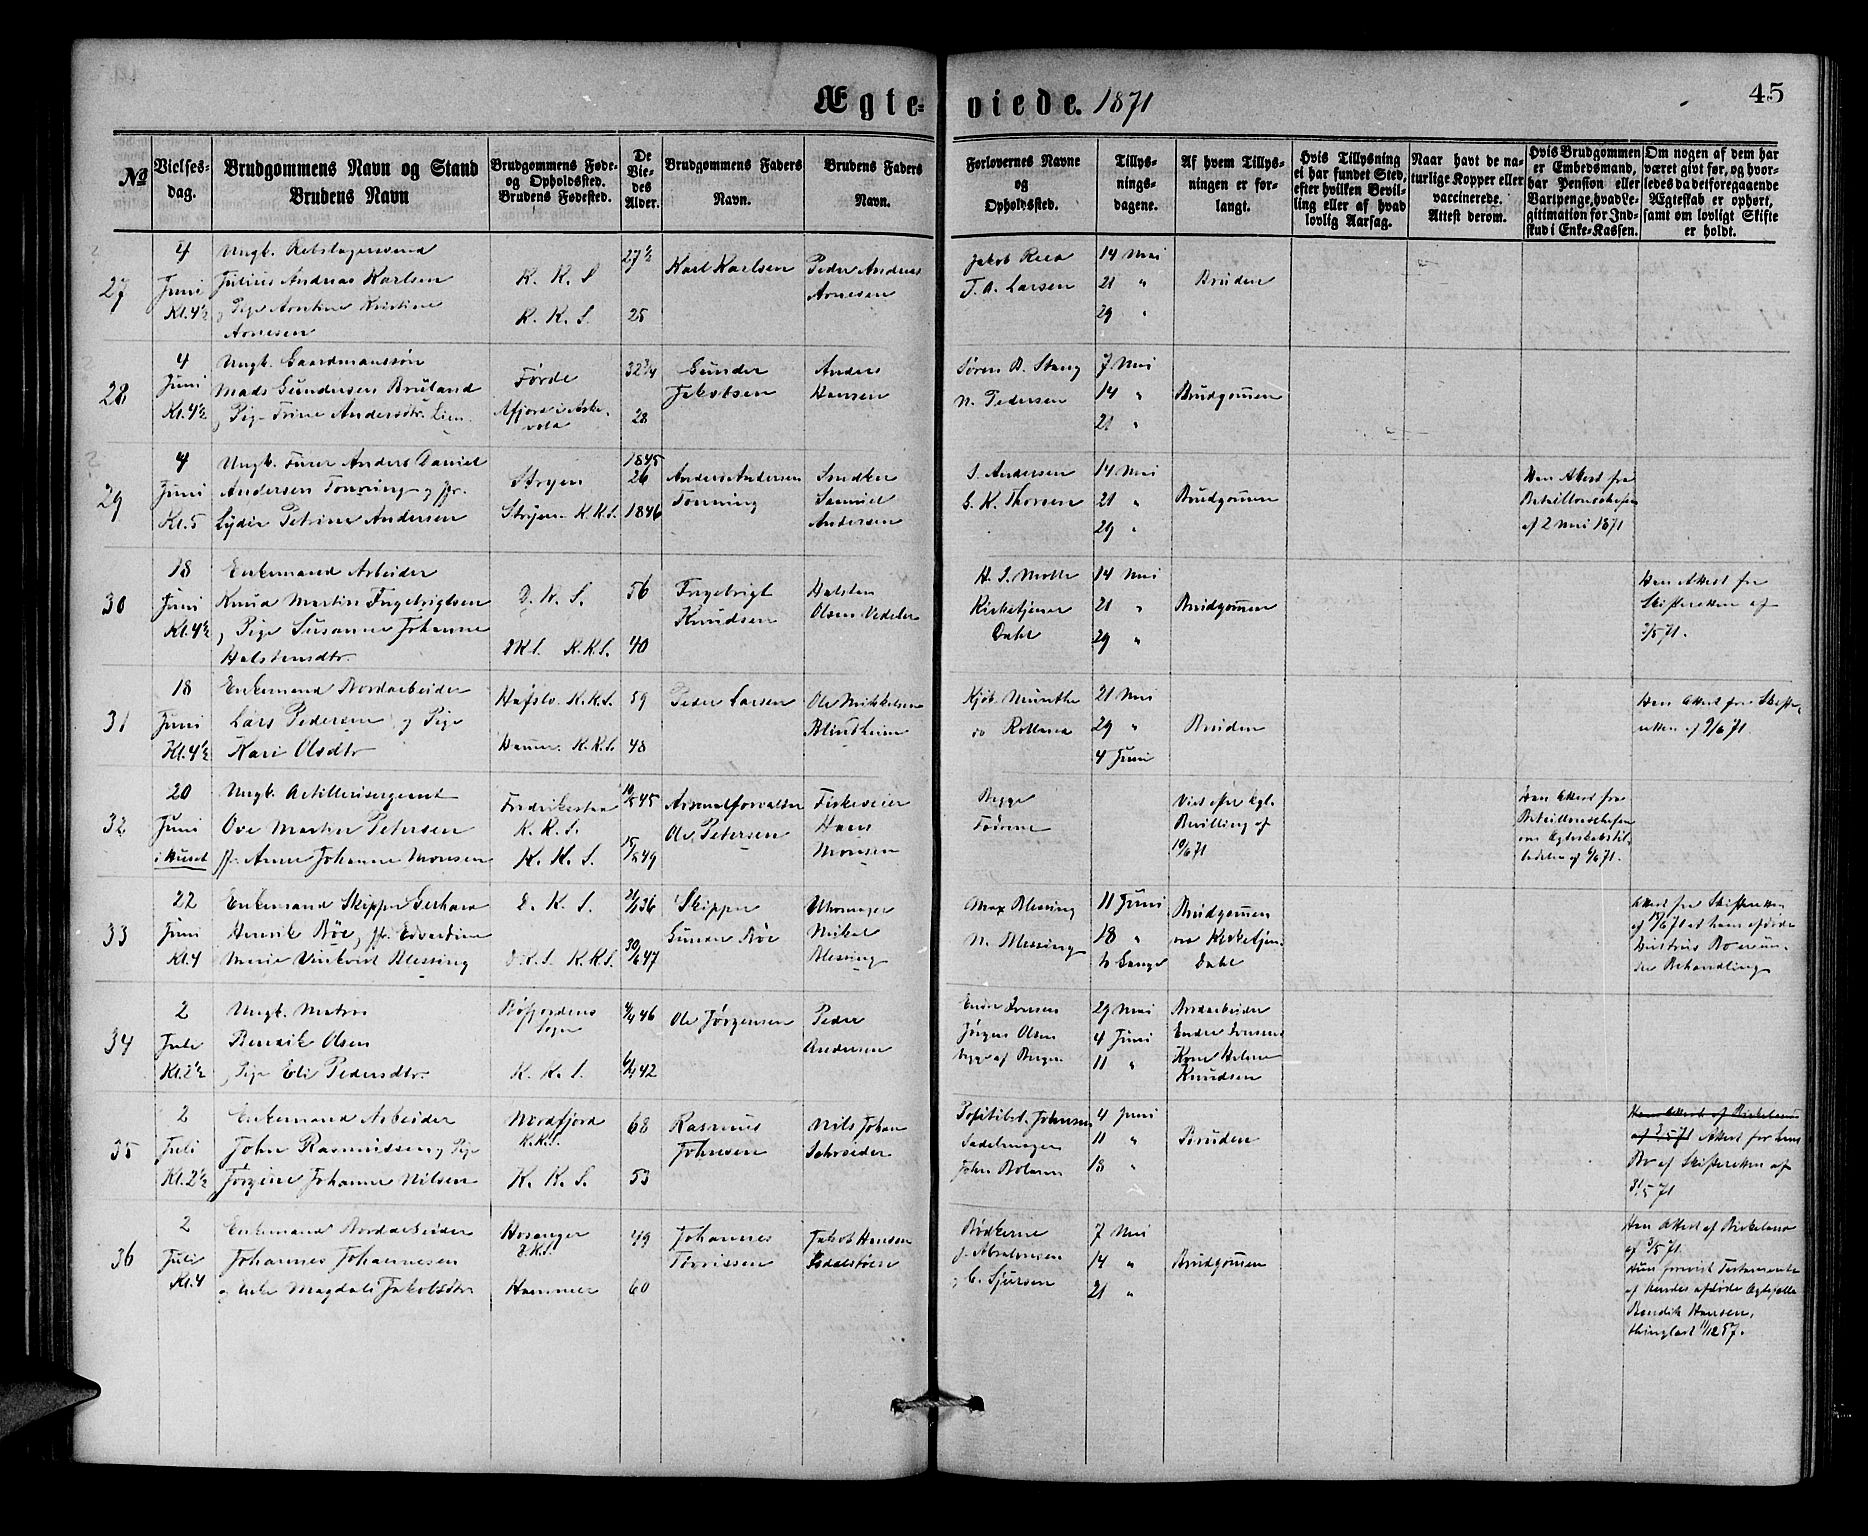 Ægte-viede. 1871
45
No
Vielses-dag.
Brudgommens Navn og Stand
Brudens Navn
Brudgommens Føde- og Opholdssted.
Brudens Fødested.
De Vie-des Alder.
Brudgommens Faders Navn.
Brudens Faders Navn.
Forlovernes Navne og Opholdssted.
Tillys-nings-dagene.
Af hvem Tillys-ningen er for-langt.
Hvis Tillysning ei har fundet Sted, efter hvilken Bevil-ling eller af hvad lovlig Aarsag.
Naar havt de na-turlige Kopper eller vaccinerede. Attest derom.
Hvis Brudgommen er Embedsmand, har Pension eller Vartpenge, hvad Le-gitimation for Ind-skud i Enke-Kassen.
Om nogen af dem har været givt før, og hvor-ledes da det foregaaende Ægteskab er ophørt, samt om lovligt Skifte er holdt.
27
4 Juni Kl. 4½
Ungk. Rebslagersvend
Julius Andreas Karlsen
og Pige Arntine Kristine
Arnesen
K. K. S
K. K. S.
27½
25
Karl Karlsen
Peder Andreas
Arnesen
Jakob
T. A. Larsen
14 Mai
21 "
29 "
Bruden
28
4 Juni Kl. 4½
Ungk. Gaardmanssøn
Mads Gundersen Bruland
og Pige Trine Andersdtr. Lien
Førde
Afjord i Aske-
vold
32¾
28
Gunder
Jakobsen
Anders
Hansen
Søren B. Stang
N. Pedersen
7 Mai
14 "
21 "
Brudgommen
29
4 Juni Kl. 5
Ungk. Furer Anders Daniel
Andersen Tonning og Jfr.
Lydia Petrine Andersen
Stryen
Stryen K.K.S.
1845
26
1846
Anders Andersen
Tonning
Snedker
Samuel
Andersen
S. Andersen
G. K. Thorsen
14 Mai
21 "
29 "
Brudgommen
Han Attest fra
Bataillonschefen
af 2 Mai 1871
30
18 Juni Kl. 4½
Enkemand Arbeider
Knud Martin Ingebrigtsen
og Pige Susanne Johanne
Halstensdtr.
D. K. S.
DKS. K.K.S.
56
40
Ingebrigt
Knudsen
Halsten
Olsen Vedeler
H. J. Mølle
Kirketjener
Dahl
14 Mai
21 "
29 "
Brudgommen
Han Attest fra
Skifteretten af
/5 71.
31
18 Juni Kl. 4½
Enkemand Bordarbeider
Lars Pedersen og Pige
Kari Olsdtr
Hafslo. K.K.S.
Hammer. K.K.S.
59
48
Peder Larsen
Ole Mikkelsen
Blindheim
Kjøb. Munthe
21 Mai
29 "
4 Juni
Bruden
Han Attest fra Skifte-
retten af /6 71.
32
20 Juni i Huset
Ungk. Artillerisergeant
Ove Martin Petersen
Jfr. Anne Johanne Monsen
Fredrikstad
K. K. S.
K. K. S.
45
49
Arsenalforvalter
Ole Petersen
Fiskeveier
Hans
Monsen
Begge
Fædrene
Viet efter Kgl.
Bevilling af
10/6 71
Han Attest fra
Bataillonschefen
om Ægteskabstil-
ladelse af /6 71.
33
22 Juni Kl. 4
Enkemand Skipper Gerhard
Henrik Bøe, Jfr. Edvardine
Marie Blessing
D. K. S.
D.K.S. K.K.S.
36
47
Skipper
Gunder Bøe
Uhrmager
Mikal
Blessing
Max Blessing
N. Blessing
11 Juni
18 "
to Gange
Brudgommen
ved Kirketjen.
Dahl
Attest fra Skifteretten
af /6 71 at hans afdøde
Hustrus Bo er un-
der Behandling
34
2 Juli Kl. 2½
Ungk. Matros
Bendik Olsen
og Pige Eli Pedersdtr.
Bøfjordens
Sogn
K. K. S.
46
42
Ole Jørgensen
Peder
Andersen
Endre Iversen
Jørgen Olsen
begge af Bergen
29 Mai
4 Juni
11 "
Bordarbeider
Endre Iversens
Kone Helene
Knudsen
35
2 Juli Kl. 2½
Enkemand Arbeider
John Rasmussen og Pige
Jørgine Johanne Nilsen
Nordfjord
K.K.S.
K. K. S.
68
53
Rasmus
Johnsen
Nils Johan
Schreider
Johnsen
Sadelmager
John
4 Juni
11 "
18 "
Bruden
Han Attest af Birkeland
af /5 71 Attest for hans
Bo af Skifteretten af
31/5 71
36
2 Juli Kl. 4
Enkemand Bordarbeider
Johannes Johannesen
og Enke Magdali Jakobsdtr.
Hosanger
D.K.S.
Hammer
49
60
Johannes
Tørrissen
Jakob Hansen
Isdalstøen
Bødkerne
J. Abrahamsen
og C. Sjursen
7 Mai
14 "
21 "
Brudgommen
Han Attest af Birkeland
af /5 71.
Hun forevist Testamente
af hendes afdøde Ægtefælle
Bendik Hansen,
thinglæst 11/12 57.